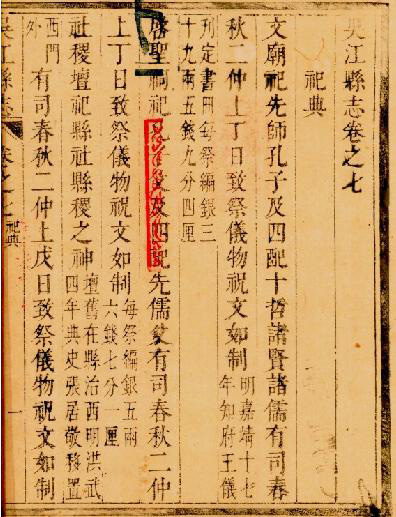 吳江縣志卷之七
祀典
文廟祀先師孔子及四配十哲諸賢諸儒有司春
秋二仲上丁日致祭儀物祝文如制
明嘉靖十七
年知府王儀
刋定書冊每祭編銀三
十九兩五錢九分四厘
啓聖祠祀孔子父及四配先儒父有司春秋二仲
上丁日致祭儀物祝文如制
每祭編銀五兩
六錢七分一厘
社稷壇祀縣社縣稷之神
壇舊在縣治西明洪武
四年典史張居敬移置
西門
外
有司春秋二仲上戊日致祭儀物祝文如制
吳江縣志
卷之七
祀典
一